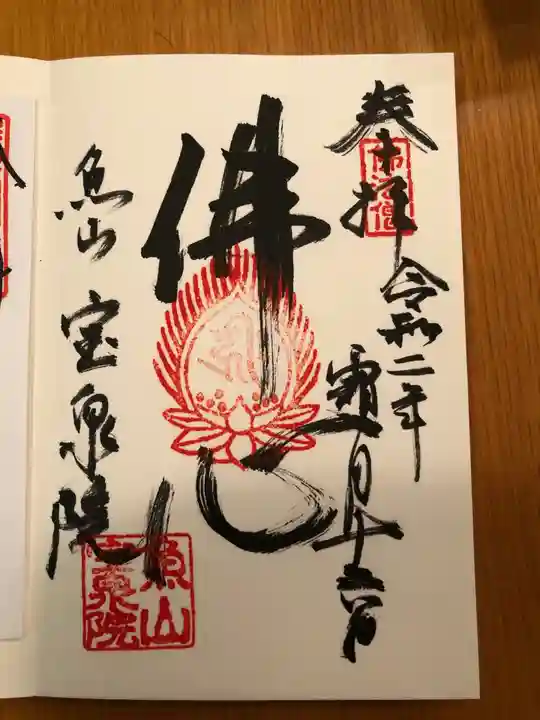 奉拝
令和二年
霜月
佛心
魚山 宝泉院
魚山
宝泉院